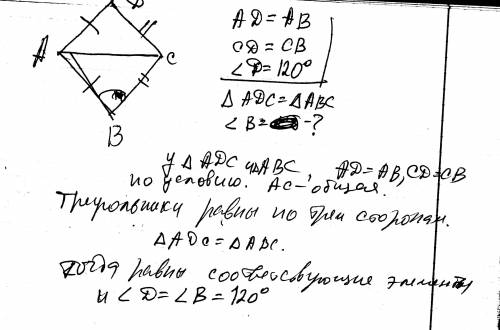 D
A
C
B
AD = AB
CD = CB
∠D = 120°
△ ADC = △ABC
∠B = - ?
У △ ADC и △ ABC, AD = AB, CD = CB
по условию. AC - общая.
Треугольники равны по трем сторонам.
△ADC = △ABC.
Тогда равны соответсвующие элементы
и ∠D = ∠B = 120°